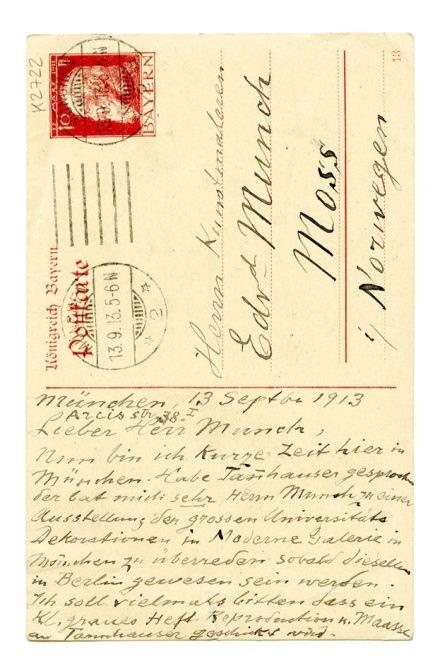 K2722
10
BAYERN
13
Königreich Bayern
Postkarte
13.9.13.5-6N
2
Herrn Kunstmaleren
Edvd Munch
Moss
i, Norwegen
München, 13 Septbr 1913
Arcisstr. 38. I
Lieber Herr Munch,
Nun bin ich kurze Zeit hier in
München. Habe Tannhauser gesprochen
der bat mich sehr Herrn Munch zu einer
Ausstellung der grossen Universitäts
Dekorationen in Moderne Galerie in
München zu überreden sobald dieselben
in Berlin gewesen sein werden.
Ich soll vielmals bitten dass ein
Kl. graues Heft Reproduction u. Maasse
an Tannhauser geschickt wird.